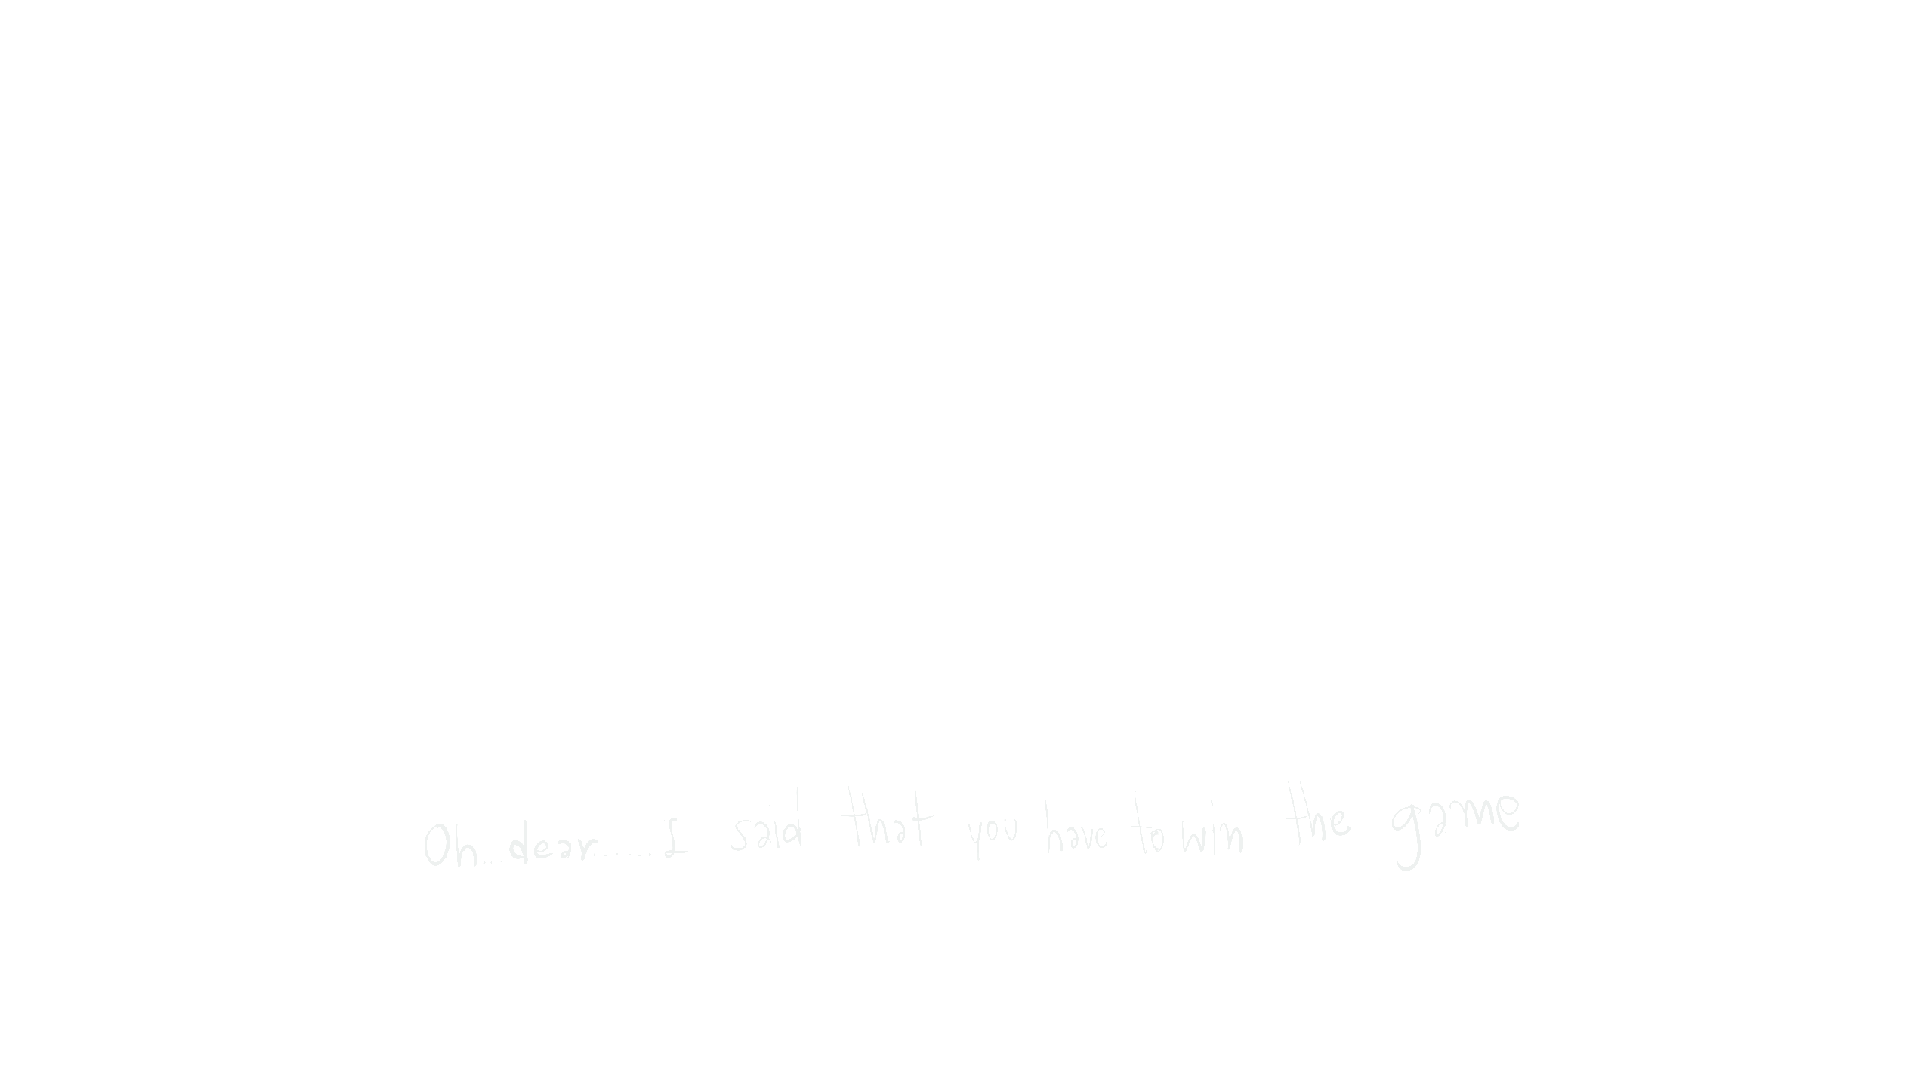 Oh.. dear...... I said that you have to win the game